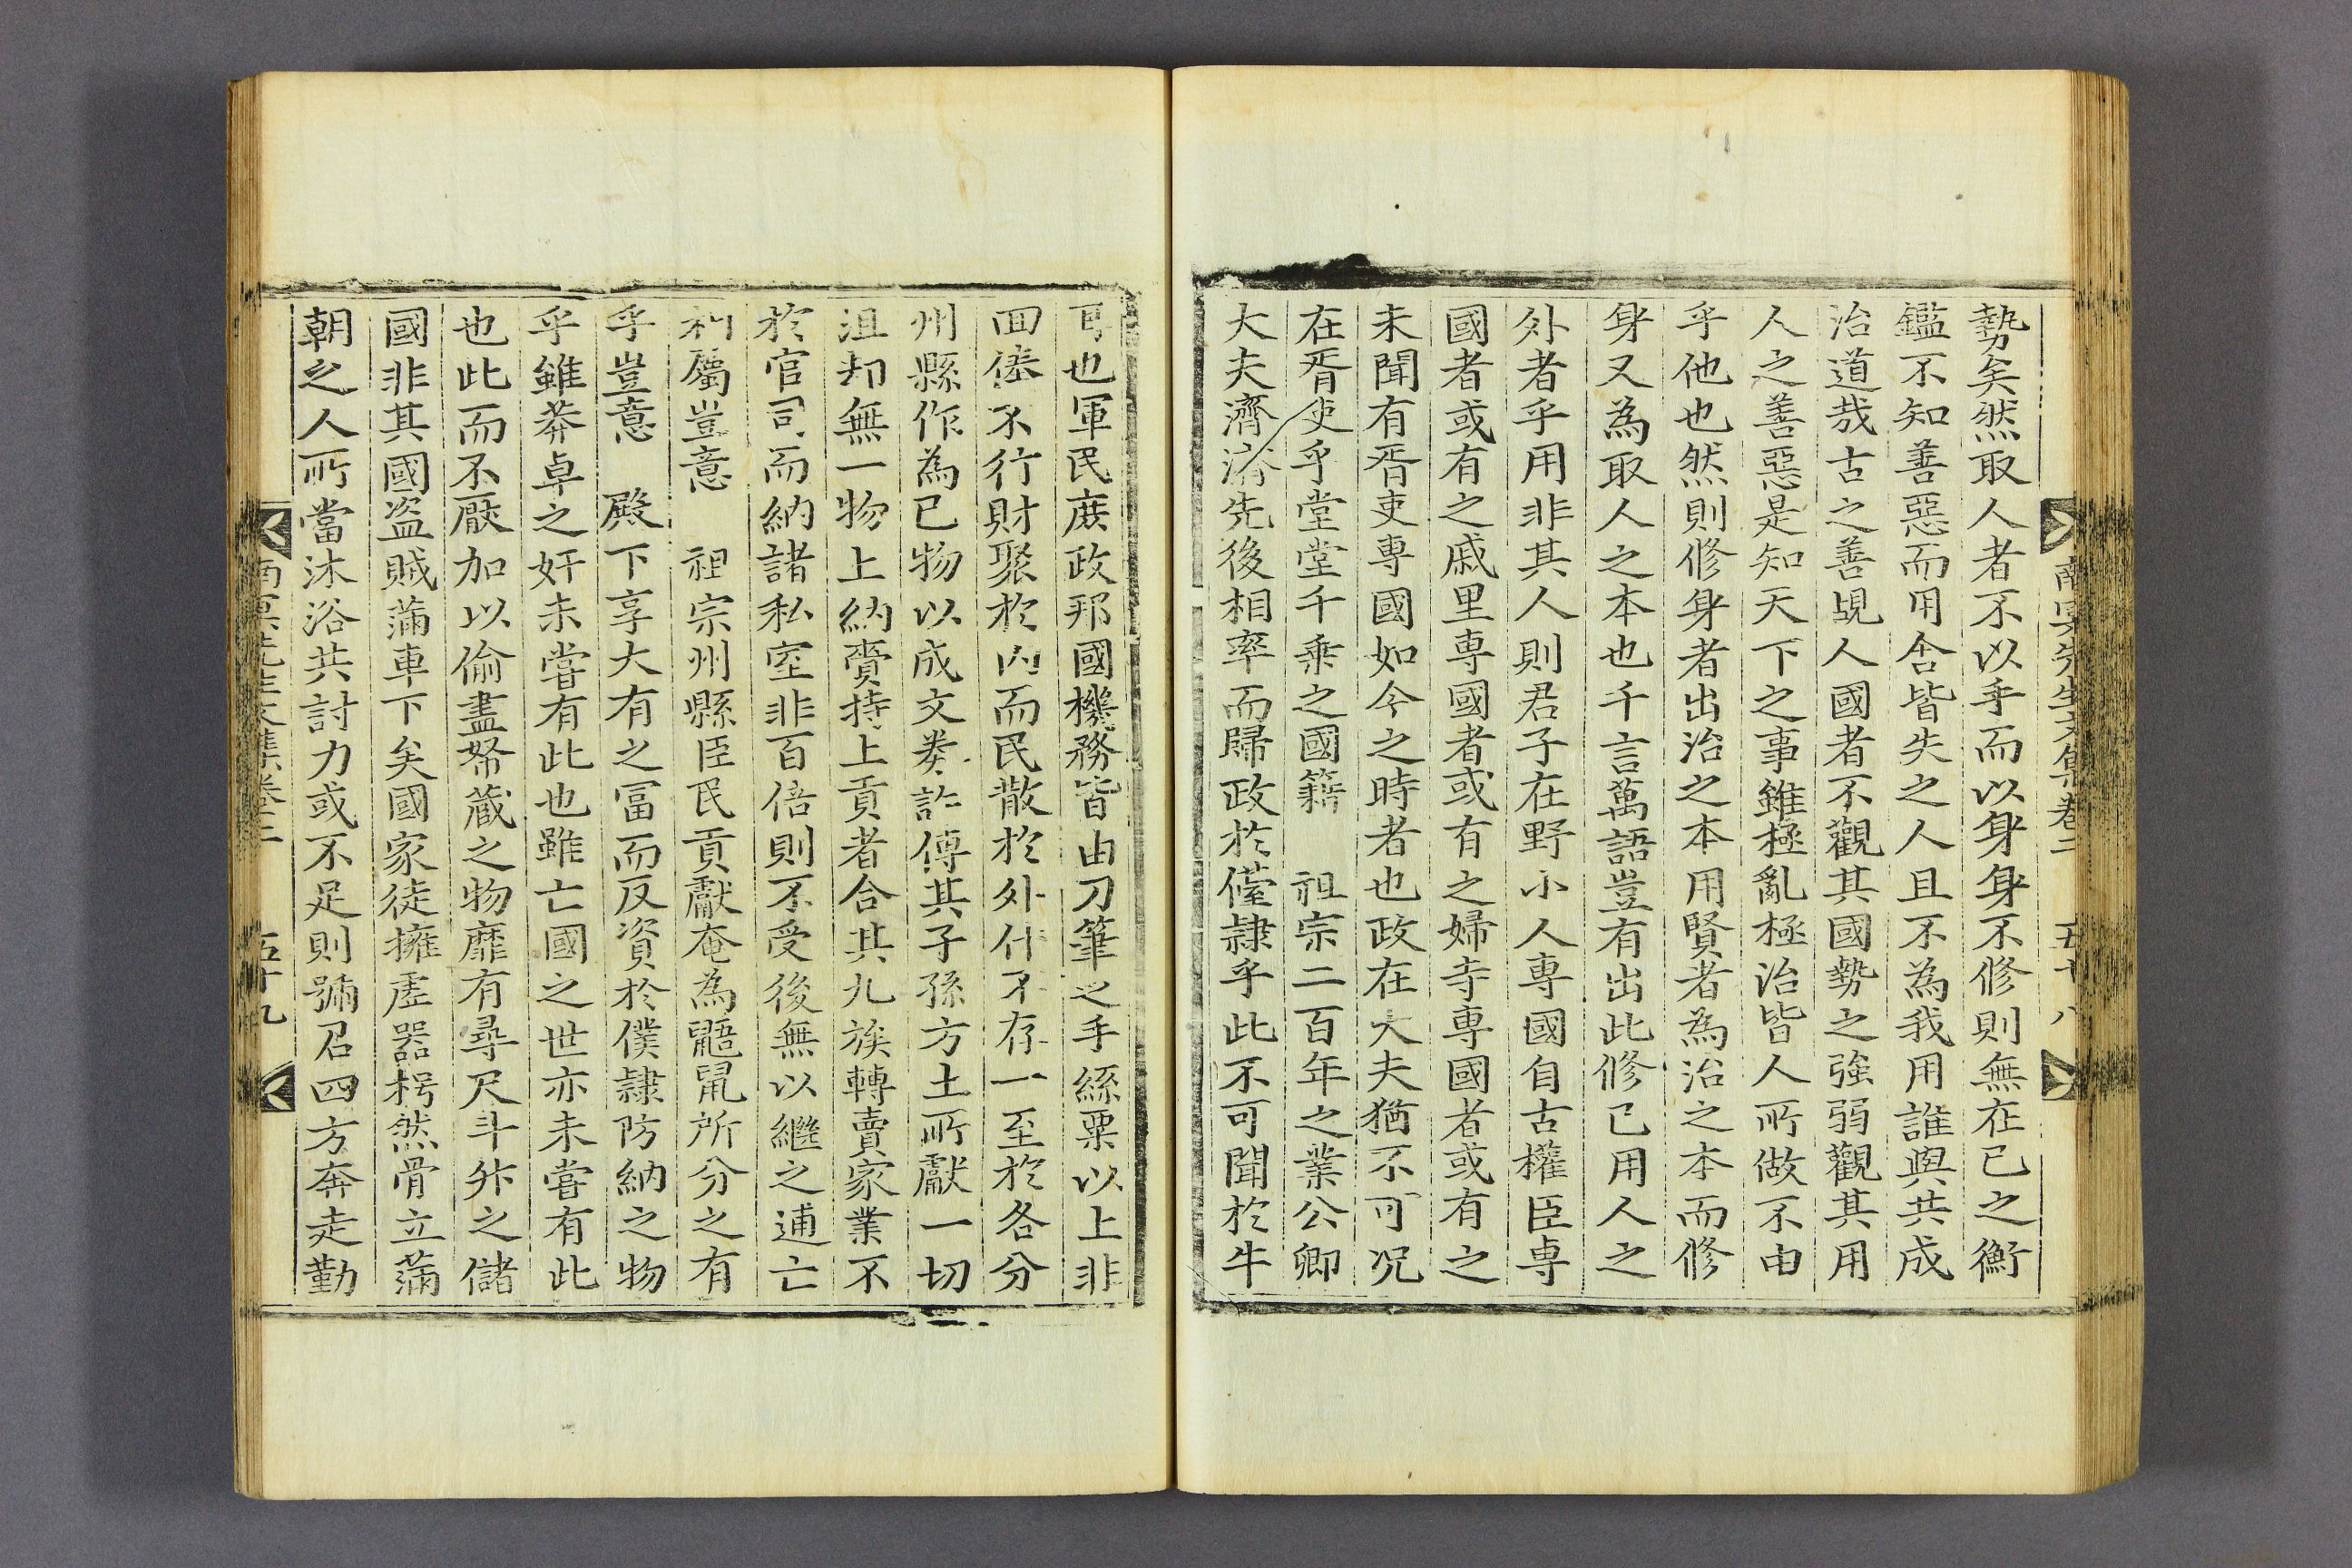 南冥先生文集卷二 五十八
勢矣然取人者不以手而以身身不修則無在已之衡
鑑不知善惡而用舍皆失之人且不為我用誰與共成
治道哉古之善覘人國者不觀其國勢之強弱觀其用
人之善惡是知天下之事雖極亂極治皆人所做不由
乎他也然則修身者出治之本用賢者為治之本而修
身又為取人之本也千言萬語豈有出此修已用人之
外者乎用非其人則君子在野小人專國自古權臣專
國者或有之戚里專國者或有之婦寺專國者或有之
未聞有胥吏專國如今之時者也政在大夫猶不可況
在胥吏乎堂堂千乘之國籍 祖宗二百年之業公卿
大夫濟濟先後相率而歸政於儓隸乎此不可聞於牛
耳也軍民庶政邦國機務皆由刀筆之手絲粟以上非
回俸不行財聚於內而民散於外什不存一至於各分
州縣作為已物以成文券許傳其子孫方土所獻一切
沮却無一物上納賷持上貢者合其九族轉賣家業不
於官司而納諸私室非百倍則不受後無以繼之逋亡
相屬豈意 祖宗州縣臣民貢獻奄為鼯鼠所分之有
乎豈意 殿下享大有之富而反資於僕隸防納之物
乎雖莽卓之奸未嘗有此也雖亡國之世亦未嘗有此
也此而不厭加以偷盡帑藏之物靡有尋尺斗升之儲
國非其國盜賊滿車下矣國家徒擁虛器枵然骨立滿
朝之人所當沐浴共討力或不足則號召四方奔走勤
南冥先生文集卷二 五十九